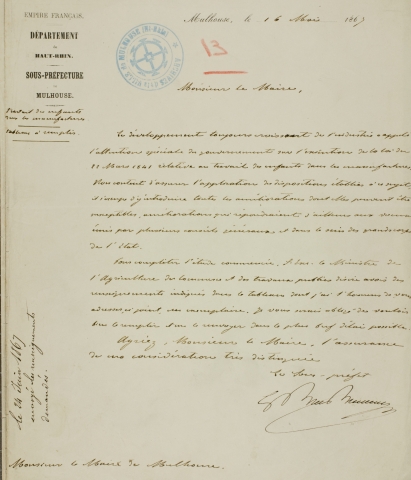 EMPIRE FRANÇAIS.
DÉPARTEMENT
DU
HAUT-RHIN.
SOUS-PRÉFECTURE
DE
MULHOUSE.
Travail des enfants
dans les manufactures
Tableau à remplir.
Mulhouse, le 16 Mai 1867
13
Monsieur le Maire,
Le développement toujours croissant de l'industrie a appelé
l'attention spéciale du gouvernement sur l'exécution de la loi du
22 Mars 1841 relative au travail des enfants dans les manufactures.
d'assurer l'application des dispositions établies à ce sujet
et d'y introduire toutes les améliorations dont elles peuvent être
susceptibles, améliorations qui répondraient d'ailleurs aux vœux
émis par plusieurs conseils généraux et dans le sein des grands corps
de l'Etat.
Pour compléter l'étude commencée, S. Exc. le Ministre de
l'Agriculture du Commerce et des travaux publics désire avoir des
renseignements indiqués dans le tableau dont j'ai l'honneur de vous
adresser ci-joint un exemplaire. Je vous serai obligé de vouloir
bien le remplir et me le renvoyer dans le plus bref délai possible
Agréez, Monsieur le Maire, l'assurance
de ma considération très distinguée
Le Sous-préfet
le 24 Juin 1867
envoyé les renseignements
demandés.
Monsieur le Maire de Mulhouse.